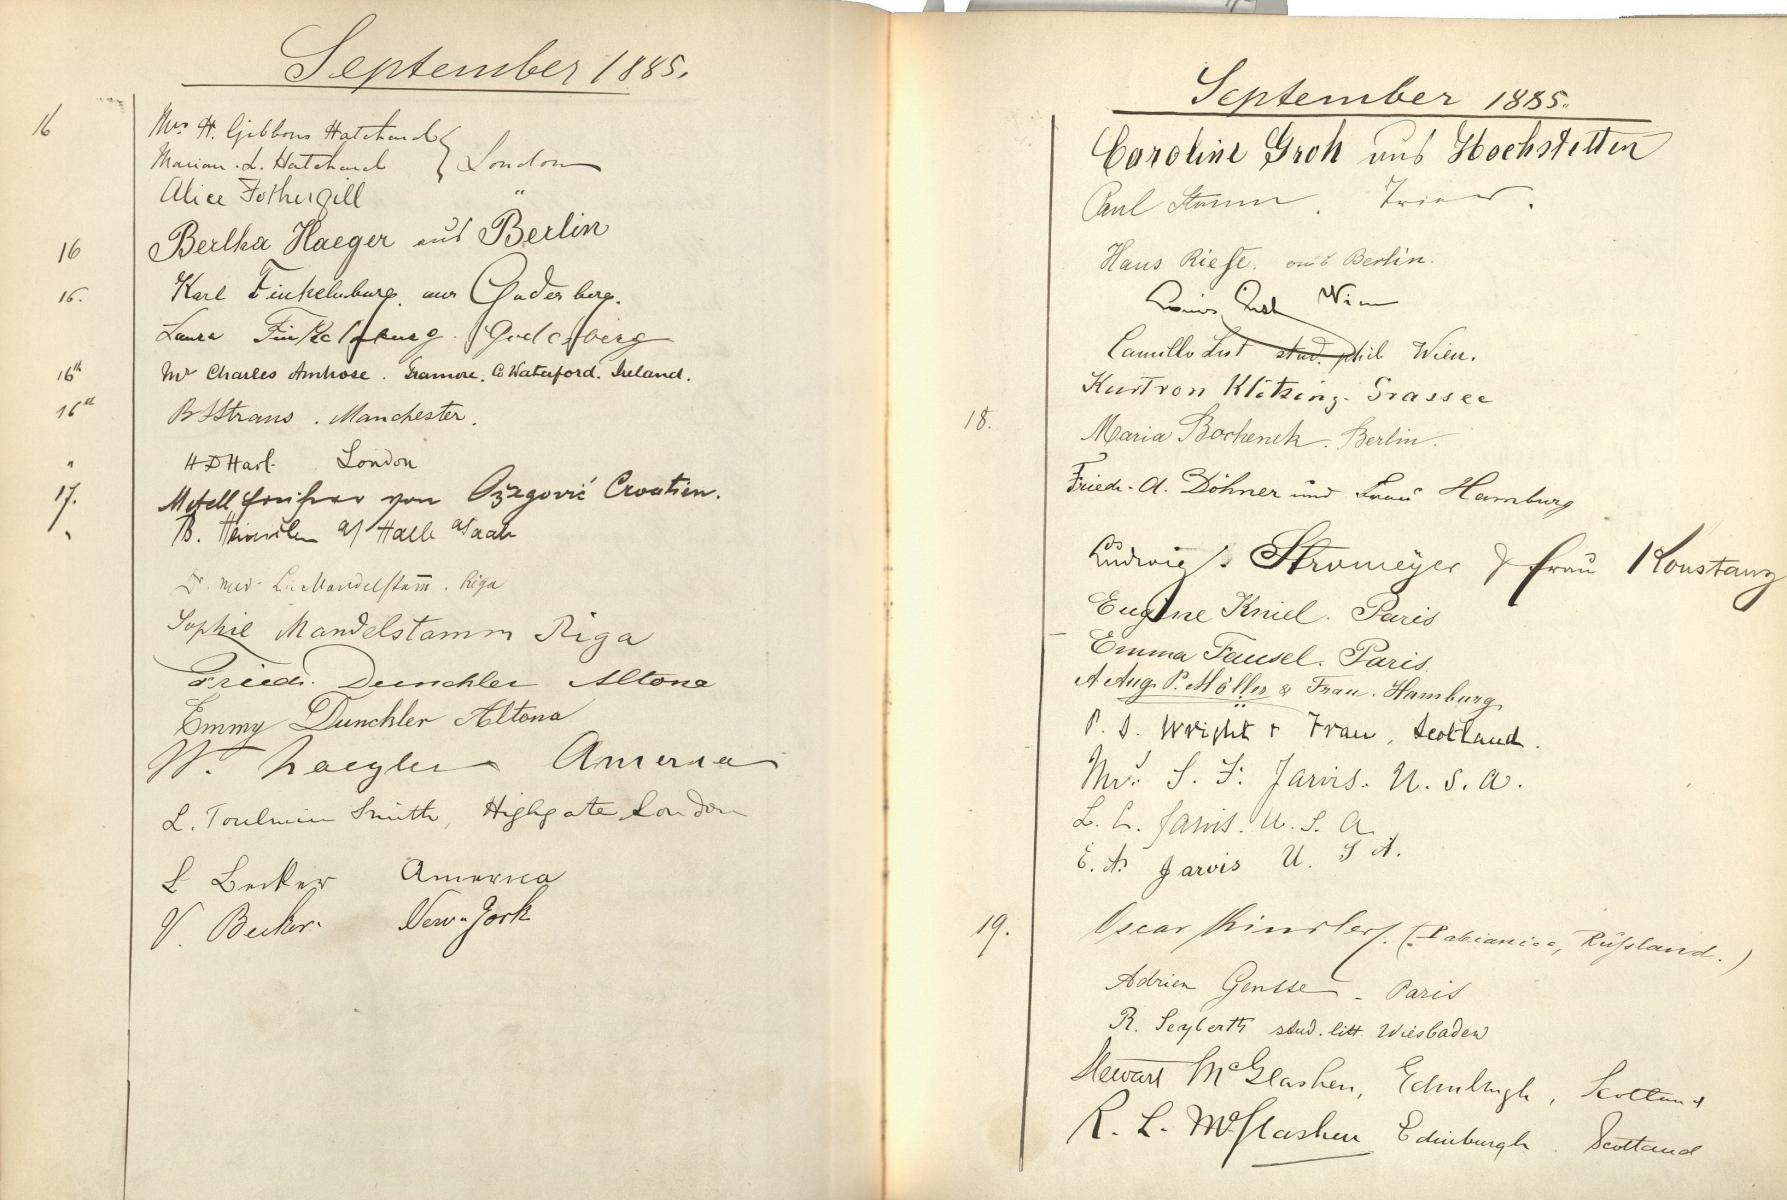 September 1885.
16 Mrs H. Gibbons Hatchard
Marian. L. Hatchard } London
Alice Fothergill "
16 Bertha Haeger aus Berlin
16. Karl Finkelnburg. aus Godesberg.
Laura Finkelnburg. Godesberg
16th Mr Charles Ambrose. Tramore. Co Waterford. Ireland.
16th B Strauss. Manchester.
" H D Hart. London
17. von Ožegović Croatien.
" B. a/ Halle a/Saale
Dr. med. L. Mandelstam̅. Riga
Sophie Mandelstamm Riga
Friedr. Dunckler Altona
Emmy Dunckler Altona
W. Naegler America
L. Toulmin Smith, Highgate, London
L Becker America
V. Becker. New-York
September 1885.
Caroline Groh aus Hochstetten
Paul Stumm. Trier.
Hans Riese. aus Berlin.
Louis Wien
Camillo List stud. phil Wien.
Kurt von Klitzing. Grassee
18. Maria Bochenek. Berlin.
Friedr. A. Döhner und Frau Hamburg
Ludwig Stromeyer & Frau Konstanz
Eugène Kniel. Paris
Emma Fausel. Paris.
A Aug. P. Möller & Frau. Hamburg.
P. D. Wright & Frau, Scotland.
Mrs. S. F. Jarvis. U. S. A.
L. L. Jarvis. U. S. A.
E. A. Jarvis U. S A.
19. Oscar Kindler. (Pabianice, Rußland.)
Adrien Gensse - Paris
R. Seyberth stud. litt. Wiesbaden
Stewart McGlashen, Edinburgh, Scotland
R. L. McGlashen Edinburgh. Scotland